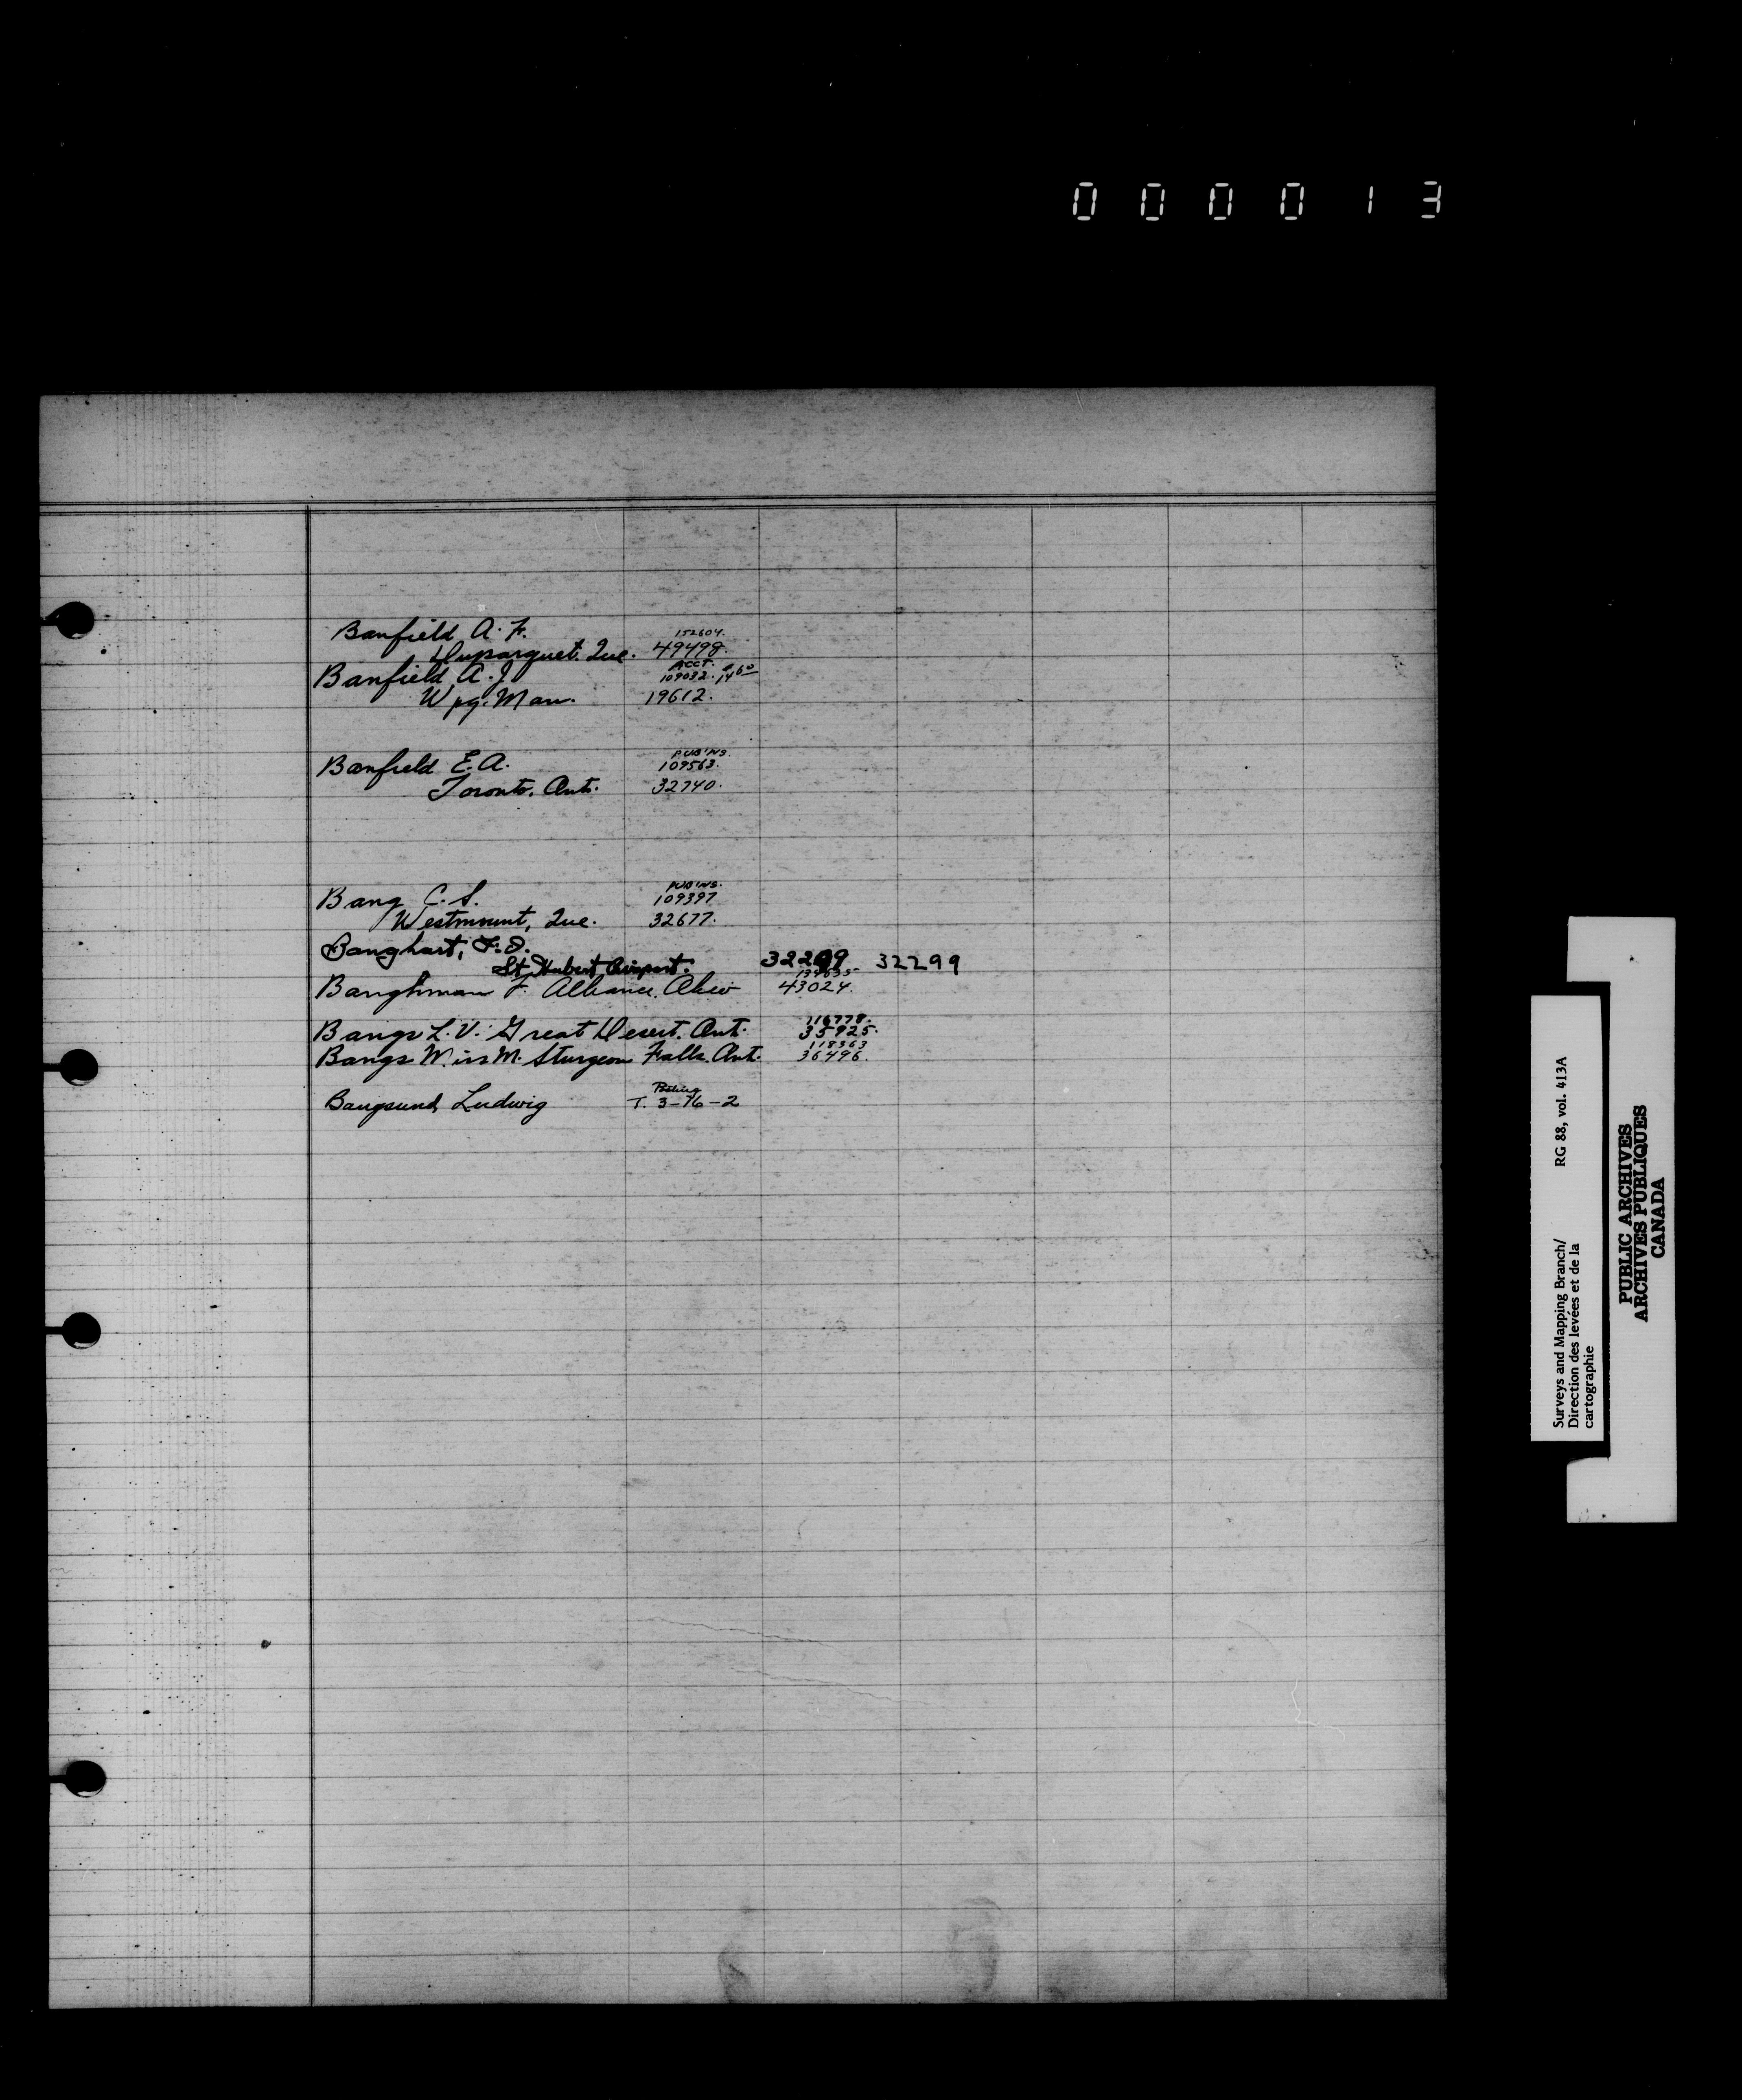 0 0 0 0 1 3
Banfield A. F. 152604.
Duparquet. Que. 49498.
Banfield A. J. Acct. 109032.
Wpg. Man. 19612.
Banfield E. A. PUB'NS. 109563.
Toronto. Ont. 32740.
Bang C. S. PUB'NS. 109397
Westmount, Que. 32677.
Banghart, F. D.
St Hubert Airport. 32299 32299
Banghman F. Alliance. Ohio 43024.
Bangs L. V. Great Desert. Ont. 116778. 35925.
Bangs Miss M. Sturgeon Falls. Ont. 118363 36496.
Bangsund, Ludwig T. 3-16-2
Surveys and Mapping Branch/ RG 88, vol. 413A
Direction des levées et de la
cartographie
PUBLIC ARCHIVES
ARCHIVES PUBLIQUES
CANADA